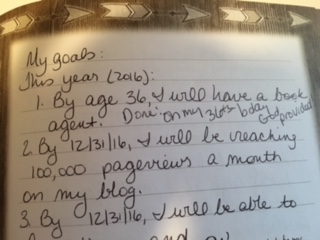 My goals:
This year (2016):
1. By age 36, I will have a book
agent. Done: on my 36th bday God provided!
2. By 12/31/16, I will be reaching
100,000 pageviews a month
on my blog.
3. By 12/31/16, I will be able to